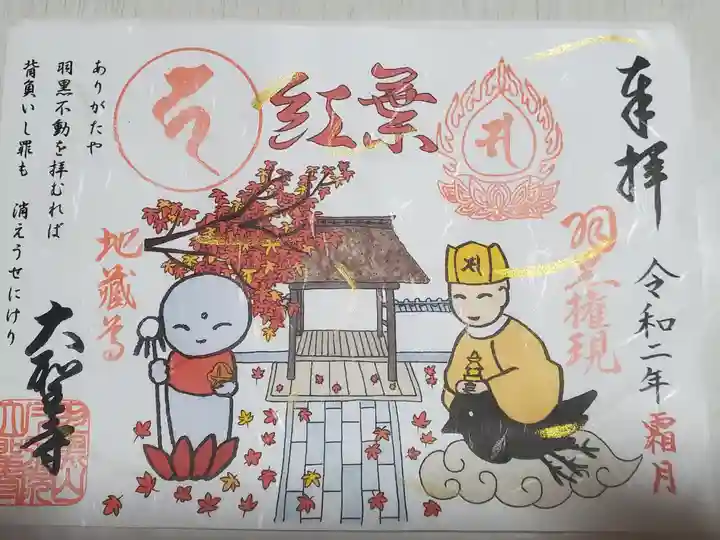 奉拝
令和二年 霜月
羽黒権現
紅葉
地蔵尊
ありがたや
羽黒不動を拝むれば
背負いし罪も 消えうせにけり
大聖寺